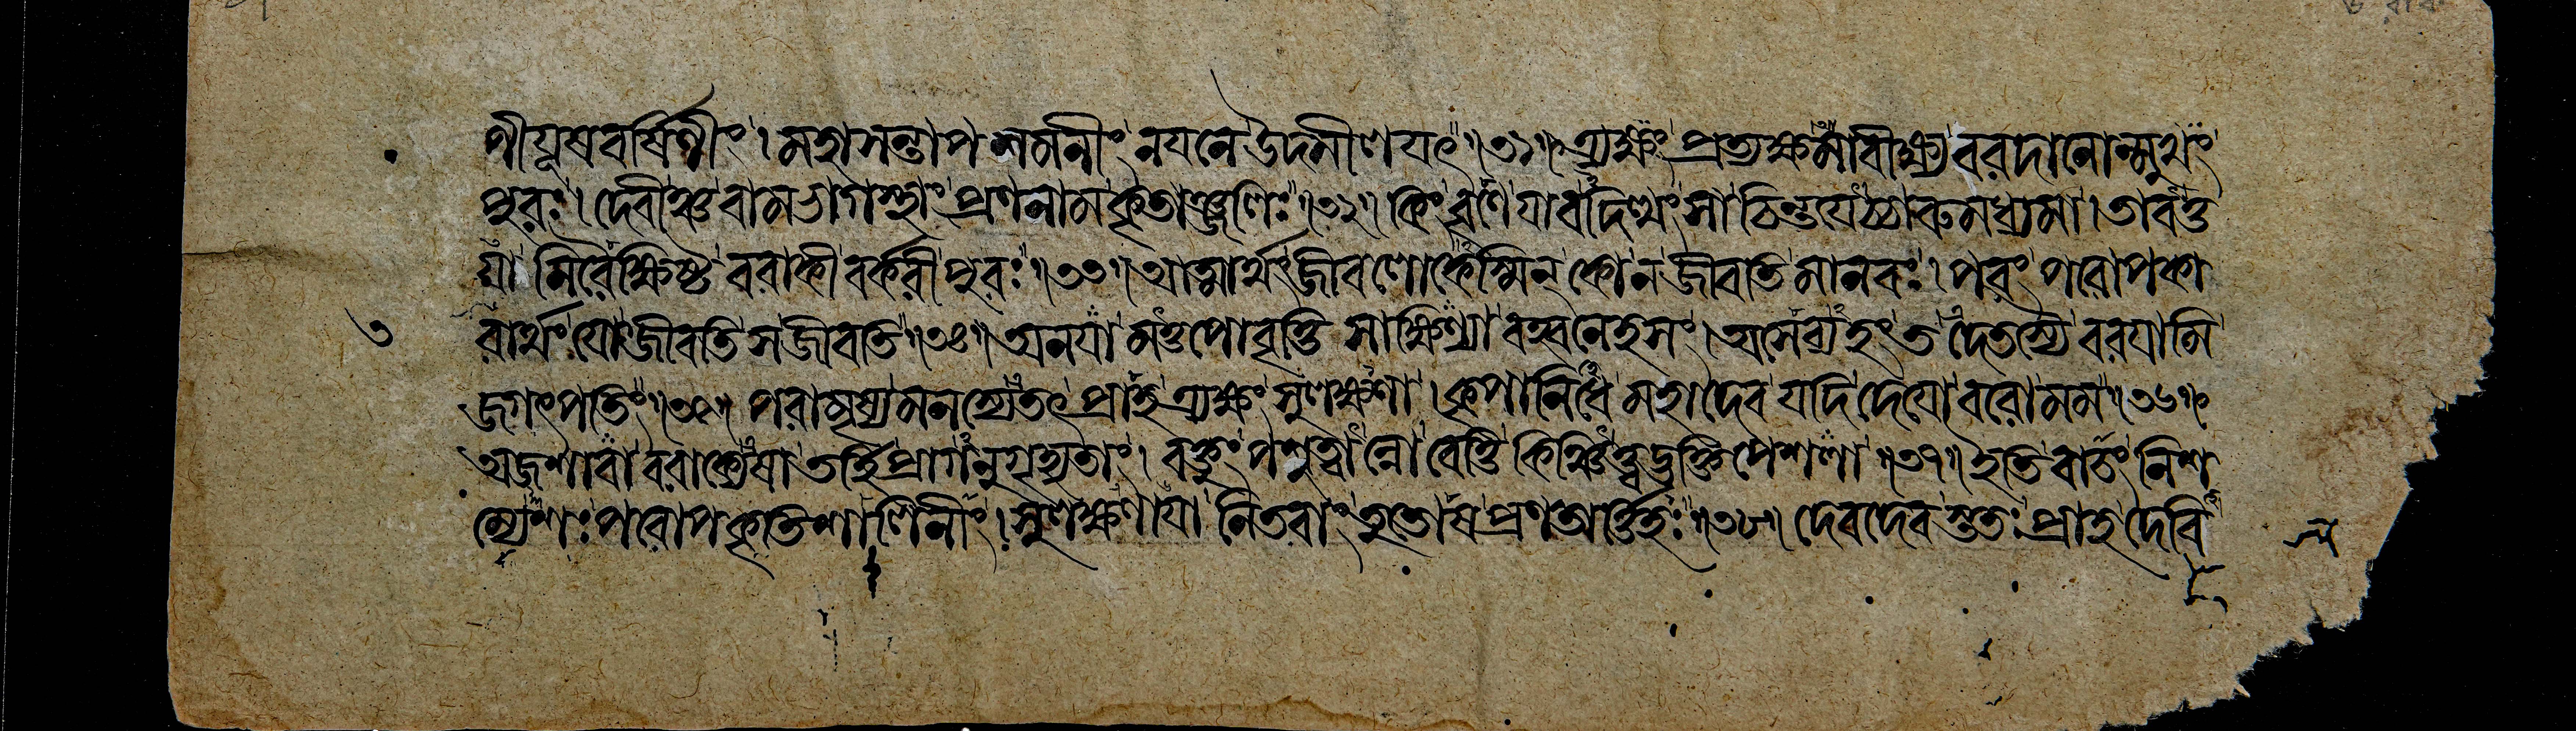 ণীযূষবর্ষিণীং। মহাসন্তাপশমনীং নযনে উদমীলযৎ॥৩১॥ ত্র্যক্ষং প্রত্যক্ষমাবীক্ষ্য বরদানোন্মুখং
পুরঃ। দেবীঞ্চ বামভাগস্থাং প্রণনাম কৃতাঞ্জলিঃ॥৩২॥ কিং বৃণে যাবদিত্থং সা চিন্তযেচ্চারুমধ্যমা। তাবত্ত
যা নিরৈক্ষিষ্ট বরাকী বর্করী পুরঃ॥৩৩॥ আত্মার্থং জীবলোকেস্মিন্ কো ন জীবতি মানবঃ। পরং পরোপকা
৩ রার্থং যো জীবতি স জীবতি॥৩৪॥ অনযা মত্তপোবৃত্তি সাক্ষিণ্যা বহ্বনেহসং। অসেব্যহং তদেতস্যৈ বরযামি
জগৎপতিং॥৩৫॥ পরামৃষ্য মনস্যেতৎ প্রাহ ত্র্যক্ষং সুলক্ষণা। কৃপানিধে মহাদেব যদি দেযো বরো মম॥৩৬॥
অজশাবী বরাক্যেষা তর্হি প্রাগনুগৃহ্যতাং। বক্তুং পশুত্বান্নো বেত্তি পেশলা॥৩৭॥ ইতি বাচং নিশ
ম্যেশঃ পরোপকৃতিশালিনীং। সুলক্ষণাযা নিতরাং তুতোষ প্রণতার্ত্তিহঃ॥৩৮॥ দেবদেবস্ততঃ প্রাহ দেবি